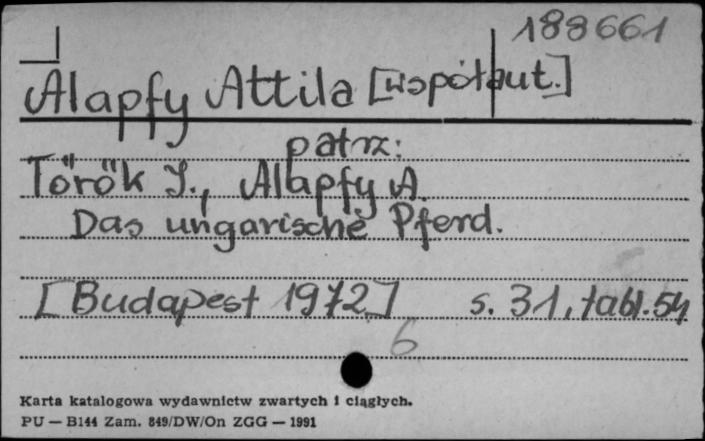 188661
Alapfy Attila [współaut.]
patrz:
Török J., Alapfy A.
Das ungarische Pferd.
[Budapest 1972] s. 31, tabl. 54
6
Karta katalogowa wydawnictw zwartych i ciągłych.
PU — B144 Zam. 849/DW/On ZGG — 1991